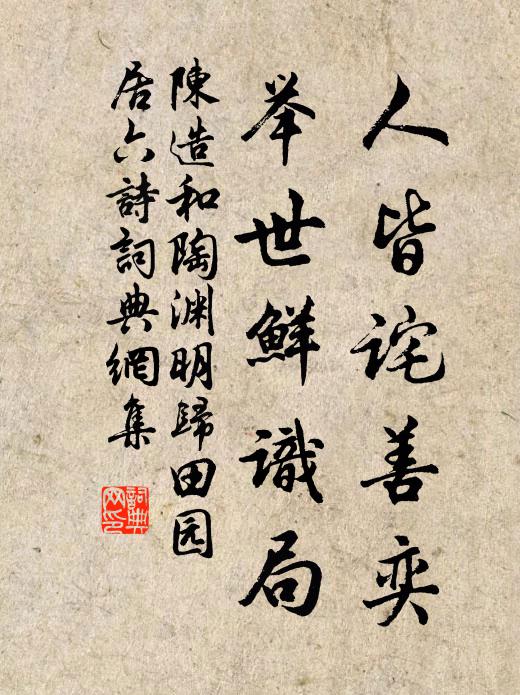 人皆詫善奕
举世鮮識局
陳造和陶渊明歸田园
居六詩詞典網集
詞典
网印